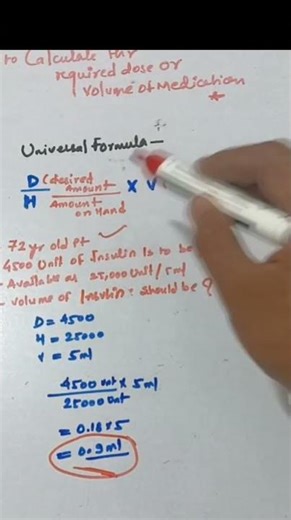 to Calculate the
required dose or
volume of Medication
Universal formula —
D (desired Amount
H Amount on Hand
X V
72 yr old pt
4500 Unit of Insulin is to be
- Available as 25,000 Unit / 5ml
- volume of Insulin should be ?
D = 4500
H = 25000
V = 5ml
4500 unit x 5ml
25000 unit
= 0.18 x 5
= 0.9 ml